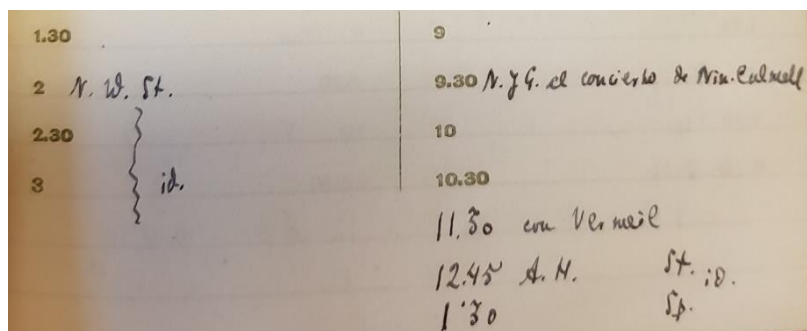 1.30
2 N. W. St.
2.30
3 id.
9
9.30 N. y G. al concierto de Nin-Culmell
10
10.30
11.30 con Vermeil
12.45 A. H. St. id.
1.30 Sp.